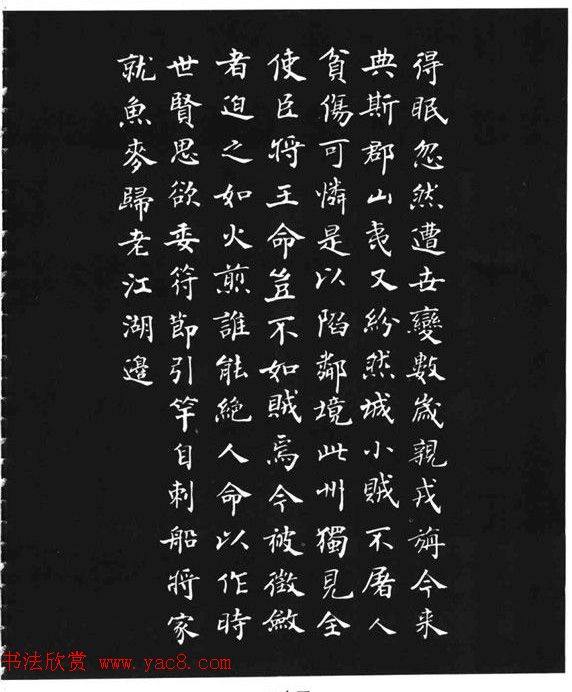 得眠忽然遭世變數歲親戎旃今来
典斯郡山夷又紛然城小賊不屠人
貧傷可憐是以陷鄰境此州獨見全
使臣将王命豈不如賊焉今被徵斂
者迫之如火煎誰能絕人命以作時
世賢思欲委符節引竿自刺船将家
就魚麥歸老江湖邊
书法欣赏 www.yac8.com